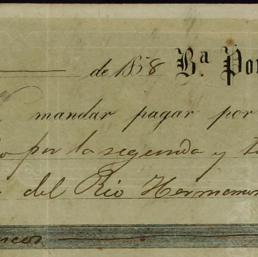 de 1858 Bª Por
mandar pagar por
por la segunda y
del Rio Hermanos